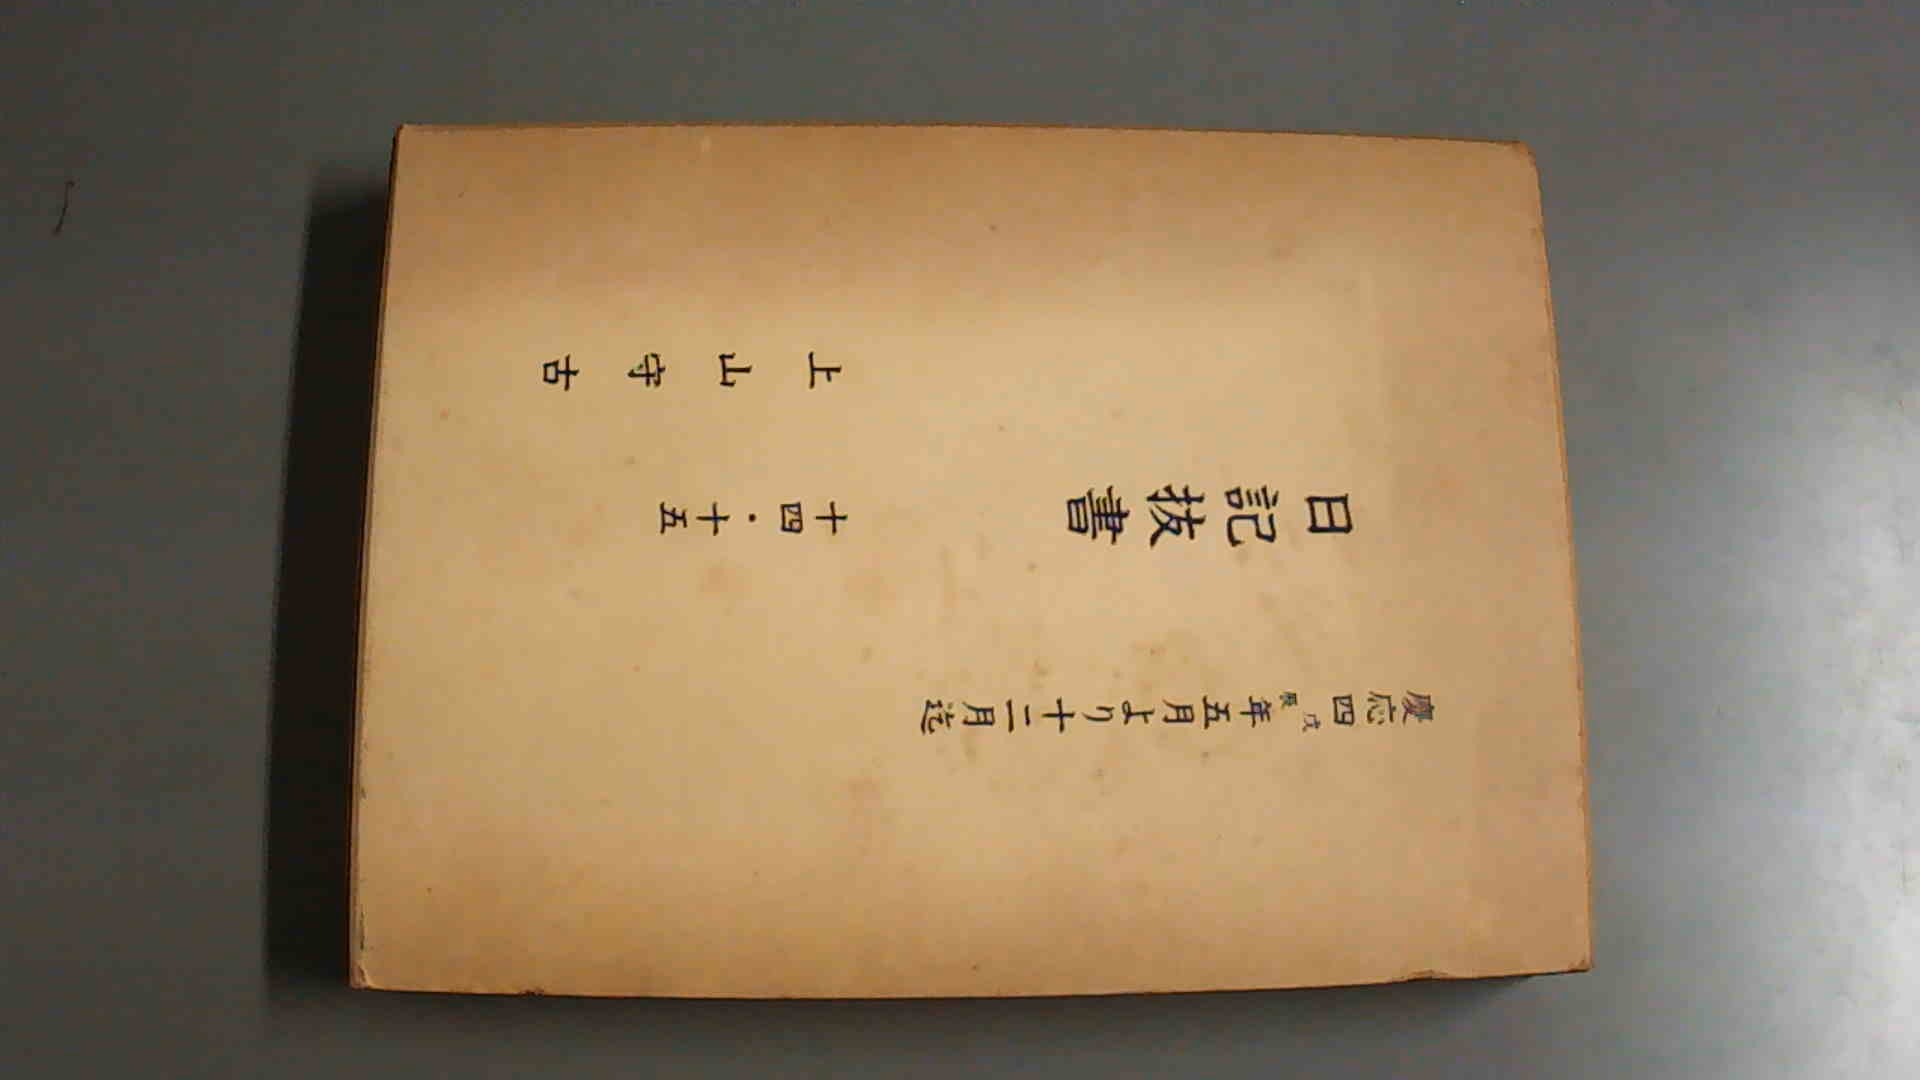 慶応四戊辰年五月より十二月迄
日記抜書 十四・十五
上山守古